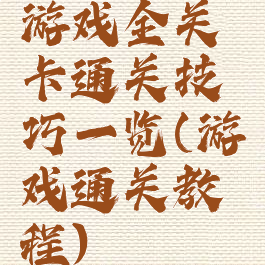 游戏全关
卡通关技
巧一览(游
戏通关教
程)